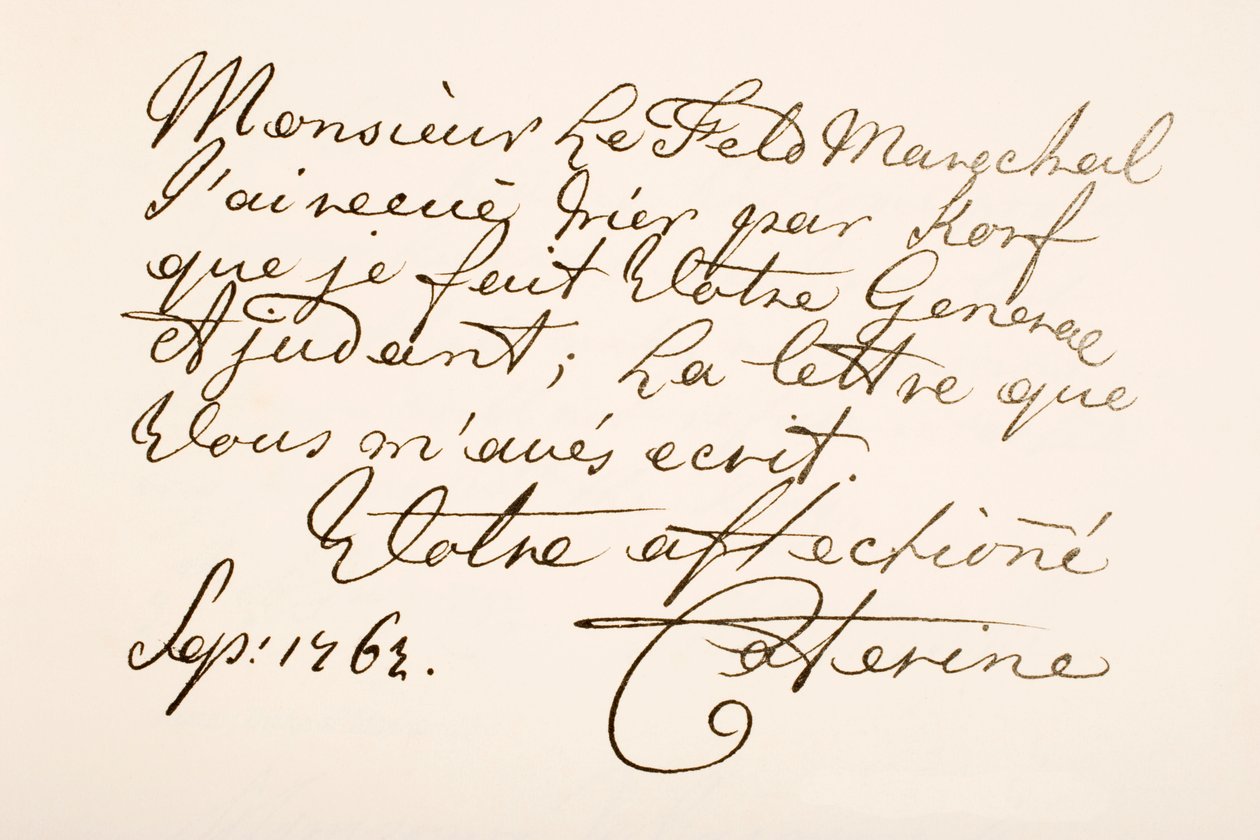 Monsieur Le Feld Marechal
J'ai recuë hier par Korf
que je fait Votre General
Ajudant; La lettre que
Vous m'avés ecrit.
Votre affectioñé
Caterine
Sep: 1763.